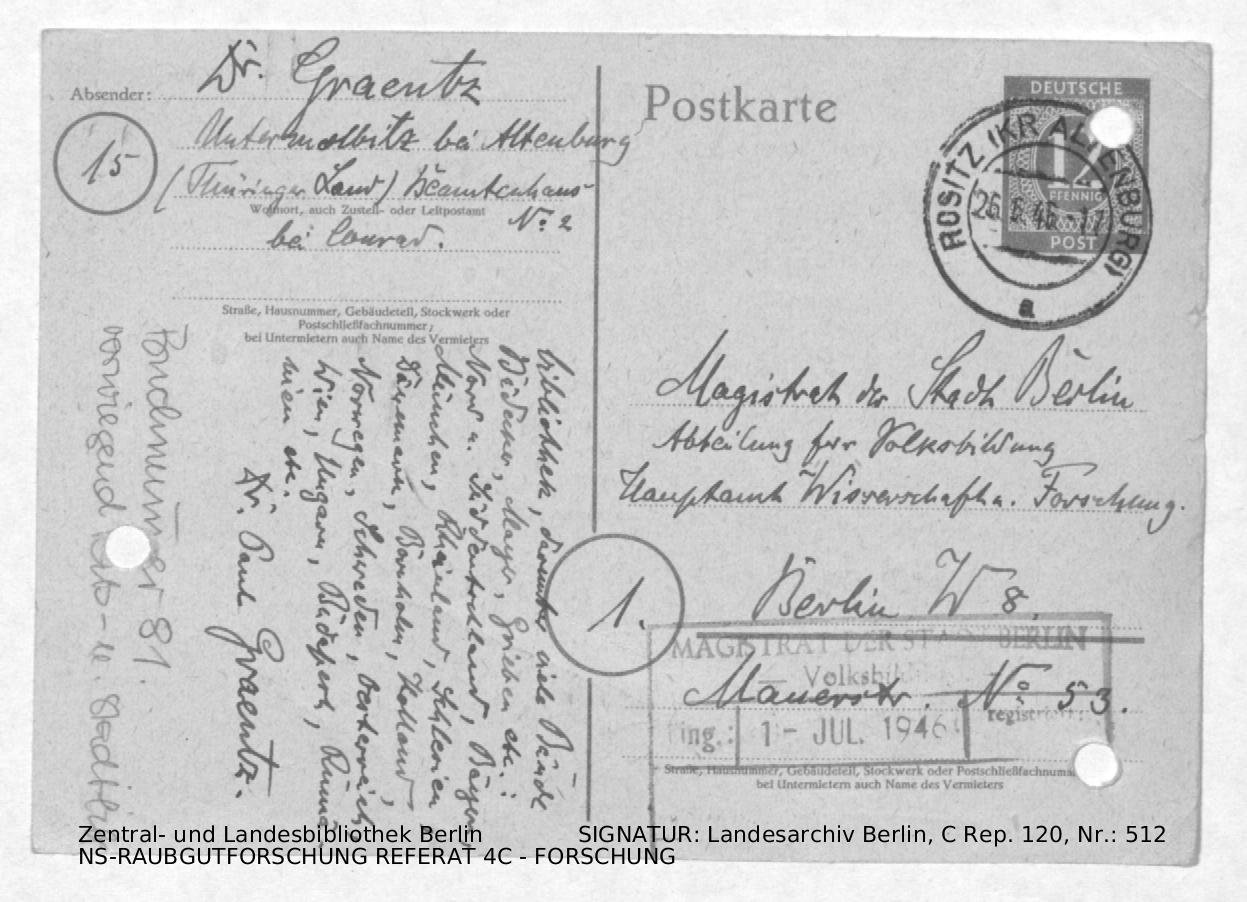 Absender:
Dr. Graentz
15
Untermolbitz bei Altenburg
(Thüringer Land) Beamtenhaus
Wohnort, auch Zustell- oder Leitpostamt
No. 2
bei Conrad.
Straße, Hausnummer, Gebäudeteil, Stockwerk oder
Postschließfachnummer;
bei Untermietern auch Name des Vermieters
bibliothek, darunter viele Bände
Bädeker, Mayer, Grieben etc.:
Nord u. Süddeutschland, Bayern,
München, Rheinland, Schlesien
Dänemark, Bornholm, Holland,
Norwegen, Schweden, Oesterreich
Wien, Ungarn, Budapest, Rumä-
nien etc.
Dr. Paul Graentz.
81.
vorwiegend
Postkarte
DEUTSCHE
12
PFENNIG
POST
ROSITZ (KR ALTENBURG)
26. 6. 46 - 17
a
Magistrat der Stadt Berlin
Abteilung für Volksbildung
Hauptamt Wissenschaft u. Forschung.
1.
Berlin W 8.
MAGISTRAT DER STADT BERLIN
Volksbil
Mauerstr. No. 53.
registriert:
Eing.: 1 - JUL. 1946
Straße, Hausnummer, Gebäudeteil, Stockwerk oder Postschließfachnumm
bei Untermietern auch Name des Vermieters
Zentral- und Landesbibliothek Berlin
NS-RAUBGUTFORSCHUNG REFERAT 4C - FORSCHUNG
SIGNATUR: Landesarchiv Berlin, C Rep. 120, Nr.: 512